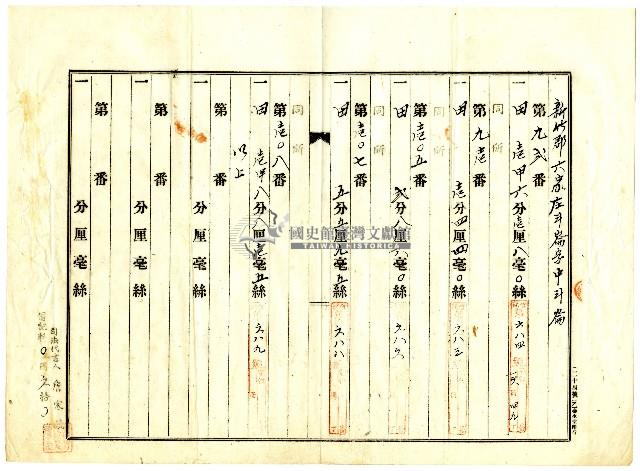 新竹郡六家庄斗崙字中斗崙
第九弍番
一 田 壱甲六分壱厘八毫〇絲
六八四
同所
第九壱番
一 田 壱分四厘四毫〇絲
六八五
同所
第壱〇五番
一 田 弍分八厘六毫〇絲
六八六
同所
第壱〇七番
一 田 五分五厘九毫五絲
六八八
同所
第壱〇八番
一 田 壱甲八分八厘壱毫五絲
六八九
以上
第 番
一 分厘毫絲
第 番
一 分厘毫絲
第 番
一 分厘毫絲
司法代書人
登記料
國史館臺灣文獻館
TAIWAN HISTORICA